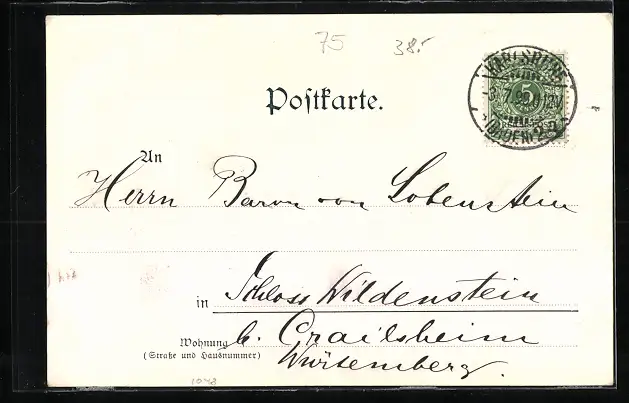 75 38.-
Postkarte.
KARLSRUHE
5
(BADEN) 2
An
Herrn Baron von Lobenstein
in Schloss Wildenstein
Wohnung b. Crailsheim
(Straße und Hausnummer)
Würtemberg.
1048